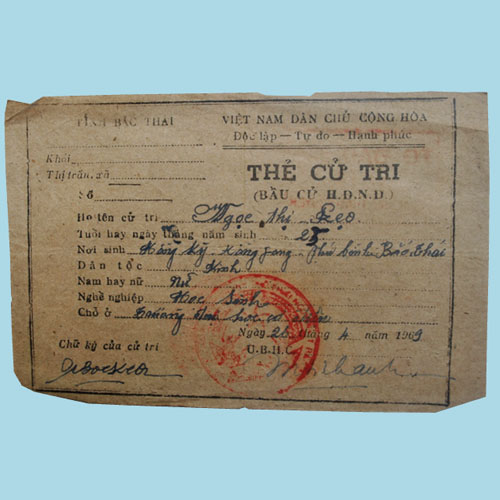 TỈNH BẮC THÁI
VIỆT NAM DÂN CHỦ CỘNG HÒA
Độc lập — Tự do — Hạnh phúc
Khối
Thị trấn, xã
THẺ CỬ TRI
Số
(BẦU CỬ H.Đ.N.D)
Họ tên cử tri Ngọc thị Kẹo
Tuổi hay ngày tháng năm sinh 25
Nơi sinh Phú bình Bắc thái
Dân tộc Kinh
Nam hay nữ Nữ
Nghề nghiệp Học sinh
Chỗ ở
Ngày 26 tháng 4 năm 1969
Chữ ký của cử tri
U.B.H.C.